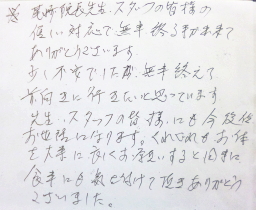 ※ 尾崎院長先生、スタッフの皆様の
優しい対応で無事終る事が出来て
ありがとうございます。
少し不安でしたが、無事終えて
前向きに行きたいと思っています
先生、スタッフの皆様にも今後
お世話になります。くれぐれもお体
を大事に良くお願いすると同時に
食事にも気を付けて頂きありがとう
ございました。